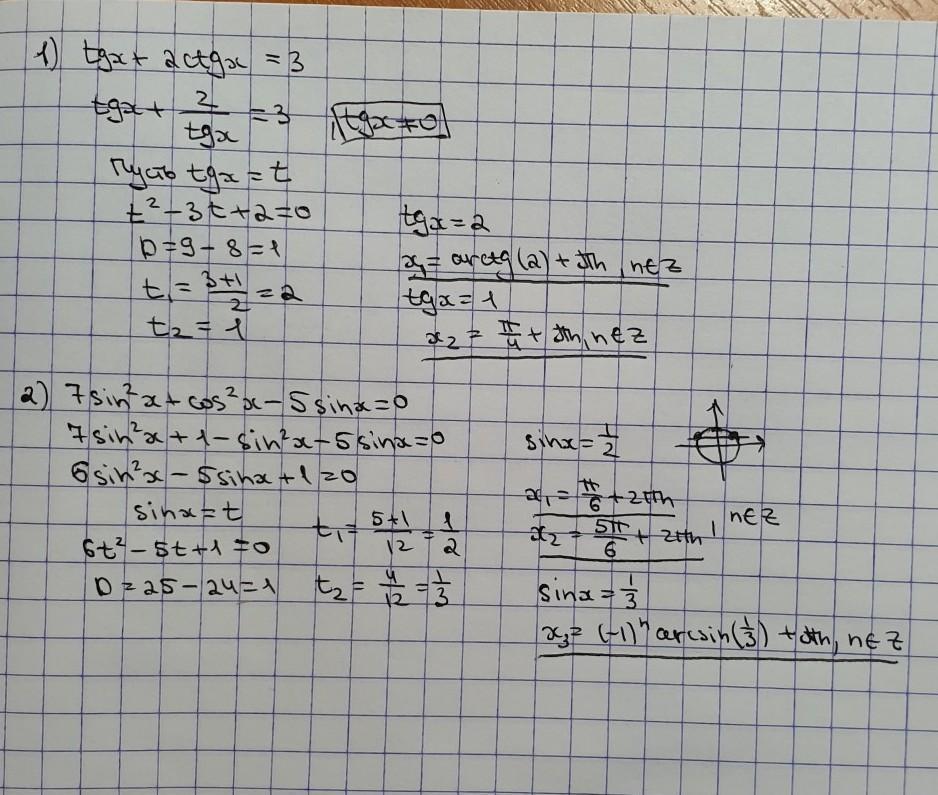 1) tgx + 2ctgx = 3
tgx + 2/tgx = 3   tgx ≠ 0
Пусть tgx = t
t² - 3t + 2 = 0
D = 9 - 8 = 1
t₁ = (3+1)/2 = 2
t₂ = 1
tgx = 2
x₁ = arctg(2) + πn, n∈Z
tgx = 1
x₂ = π/4 + πn, n∈Z
2) 7sin²x + cos²x - 5sinx = 0
7sin²x + 1 - sin²x - 5sinx = 0
6sin²x - 5sinx + 1 = 0
sinx = t
6t² - 5t + 1 = 0
D = 25 - 24 = 1
t₁ = (5+1)/12 = 1/2
t₂ = 4/12 = 1/3
sinx = 1/2
x₁ = π/6 + 2πn
x₂ = 5π/6 + 2πn, n∈Z
sinx = 1/3
x₃ = (-1)ⁿ arcsin(1/3) + πn, n∈Z